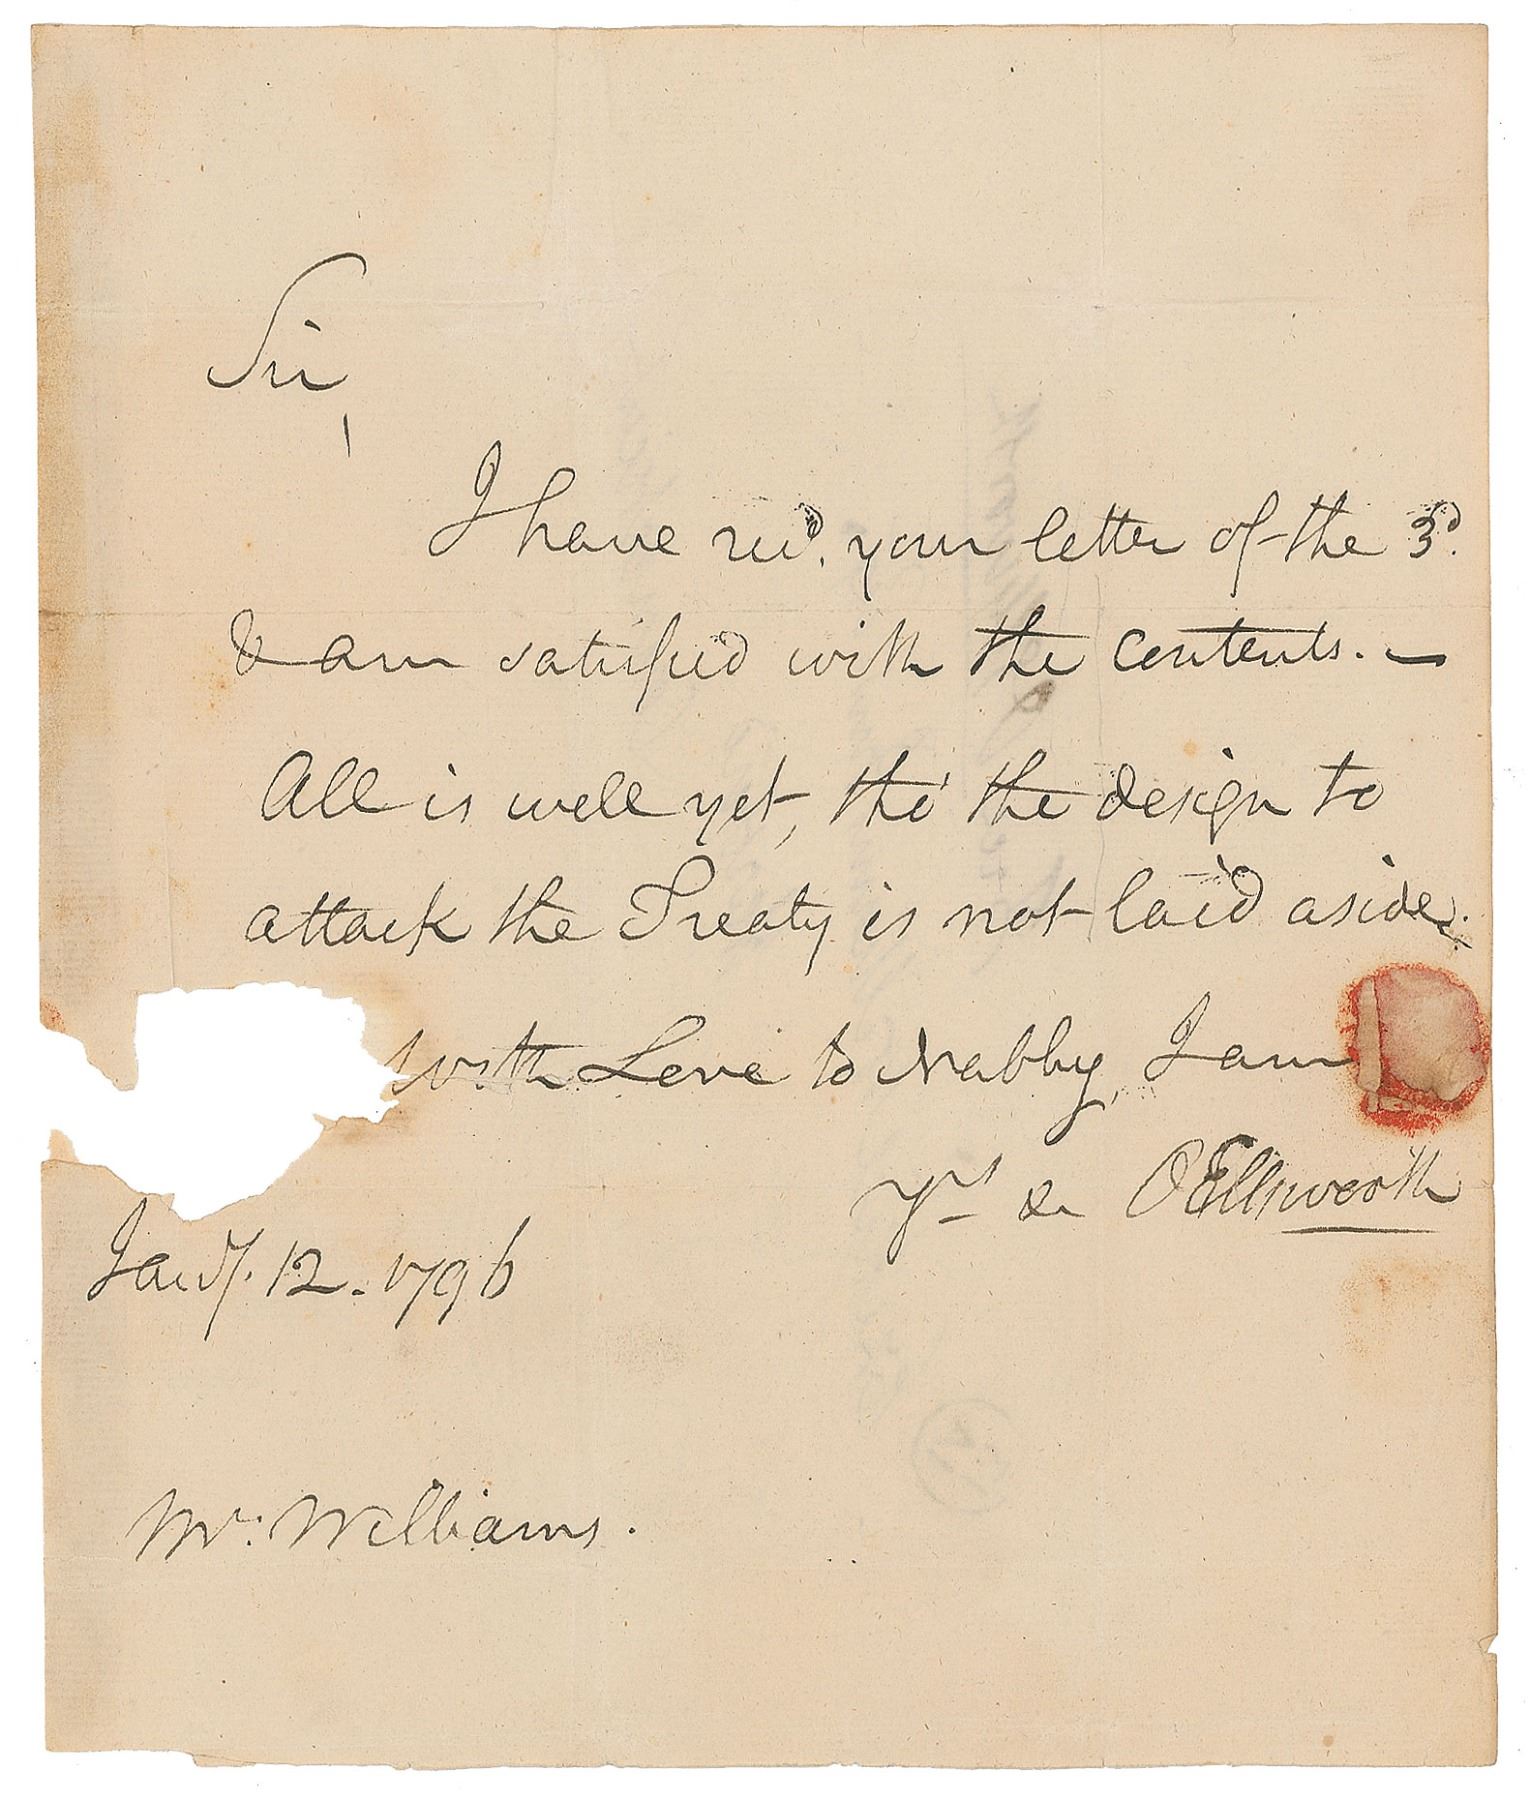 Sir,
I have recd. your letter of the 3d.
& am satisfied with the contents. —
All is well yet, tho' the design to
attack the Treaty is not laid aside.
With Love to Nabby, I am
Yrs &c OEllsworth
Jany. 12. 1796
Mr. Williams.